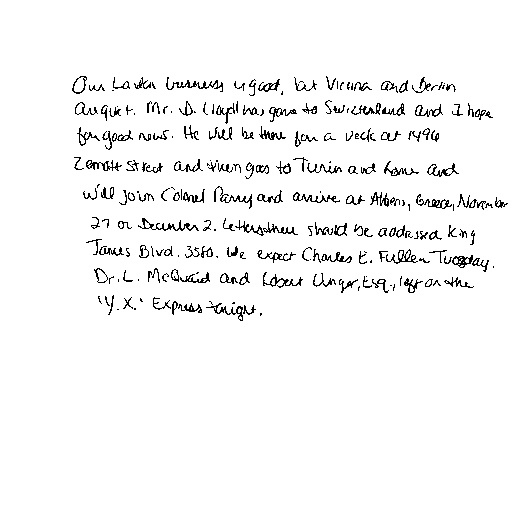 Our London business is good, but Vienna and Berlin
are quiet. Mr. D. Lloyd has gone to Switzerland and I hope
for good news. He will be there for a week at 1496
Zermott Street and then goes to Turin and Rome and
will join Colonel Parry and arrive at Athens, Greece, November
27 or December 2. Letters there should be addressed King
James Blvd. 3580. We expect Charles E. Fuller Tuesday.
Dr. L. McQuaid and Robert Unger, Esq., left on the
'Y.X.' Express tonight.